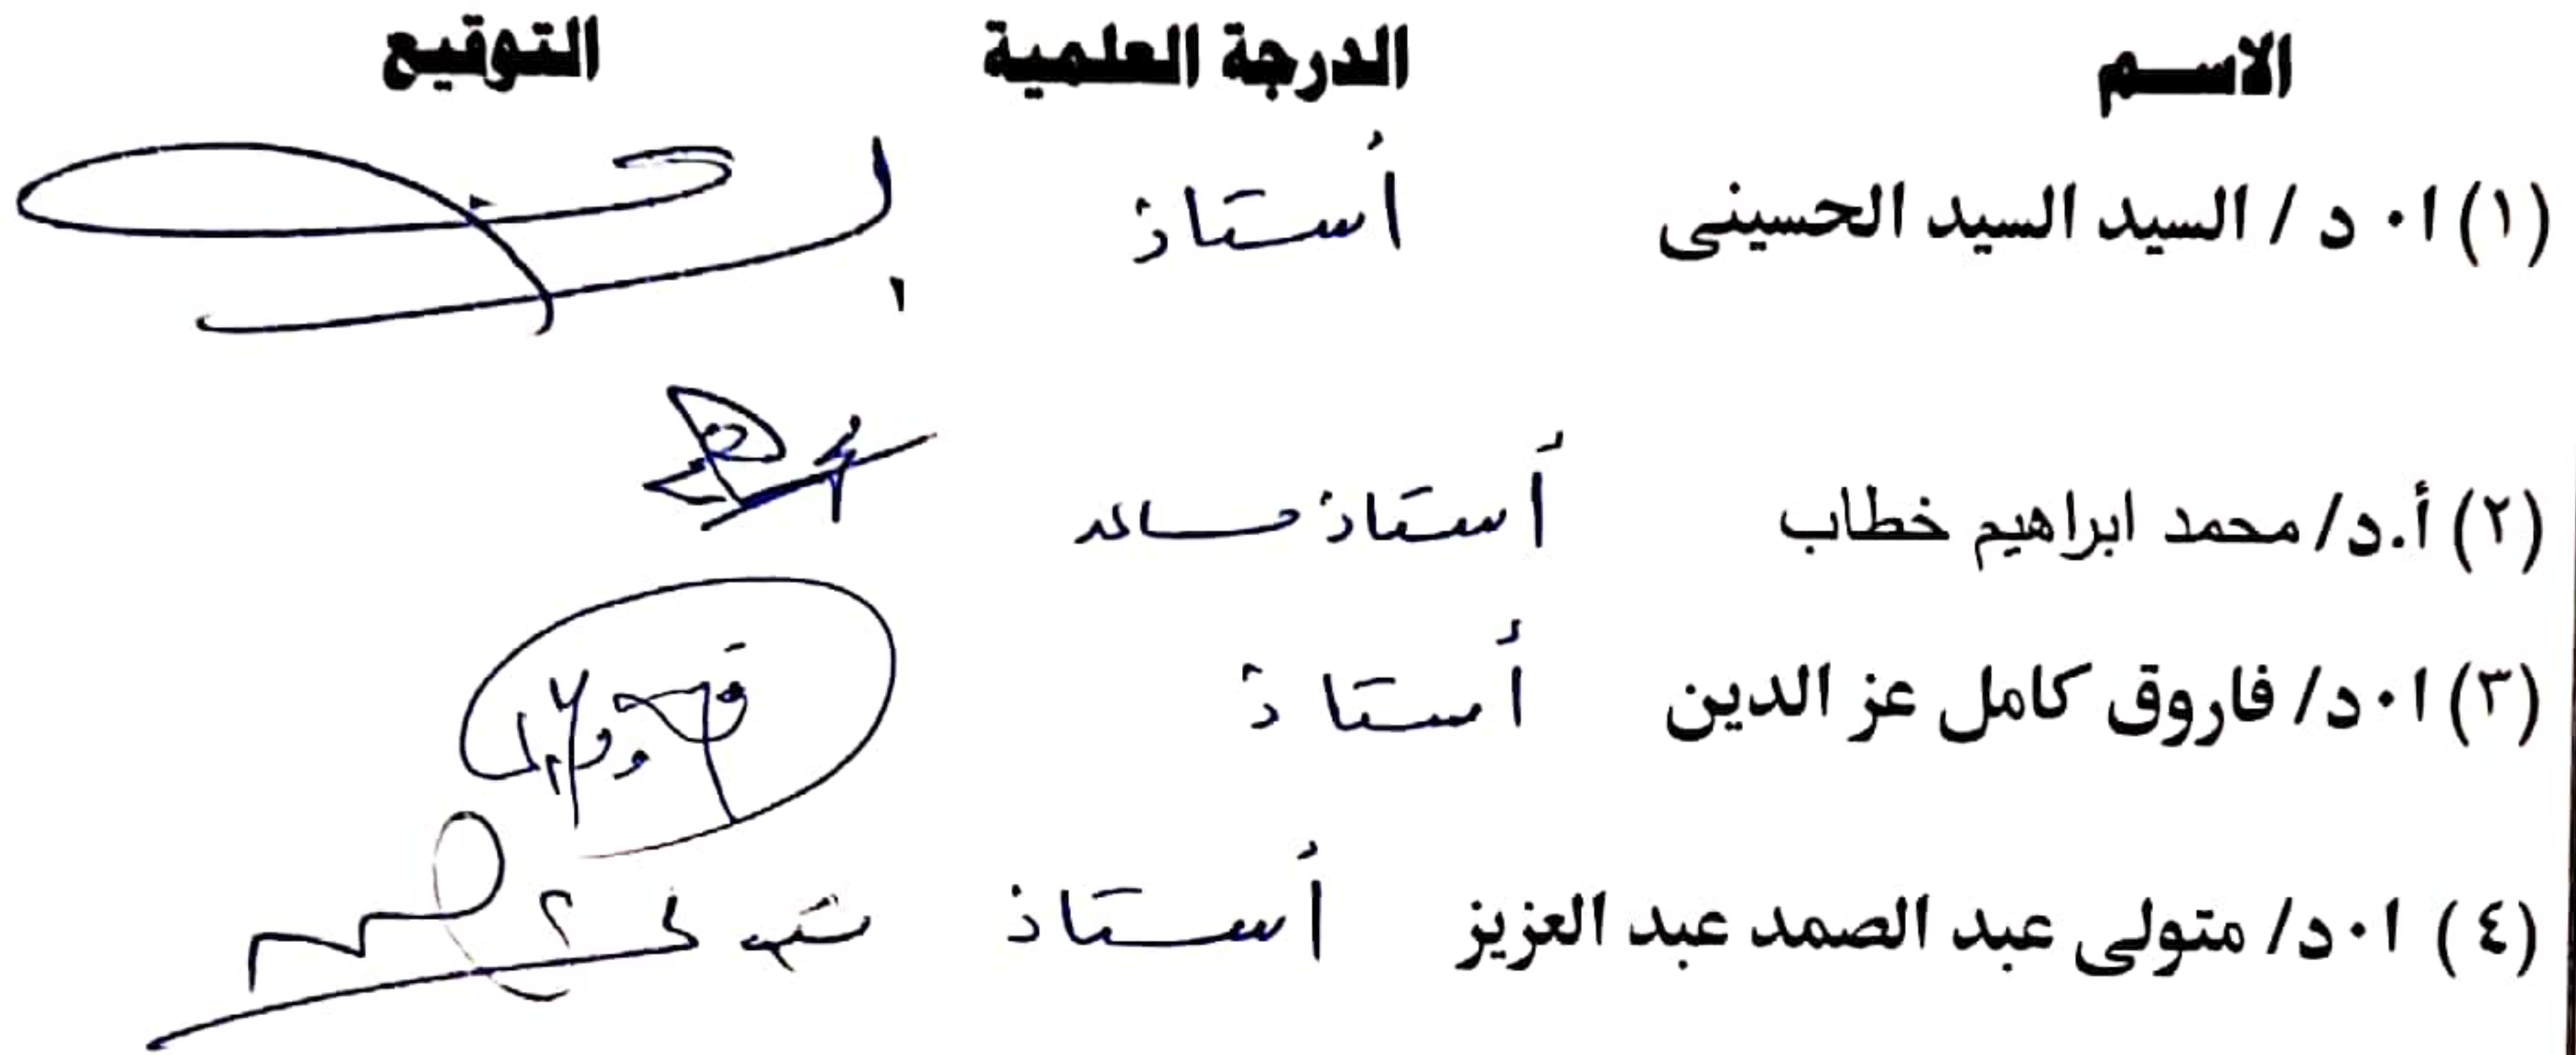 الاســم الدرجة العلمية التوقيع
(١) ا٠ د / السيد السيد الحسينى أستاذ
(٢) أ.د/ محمد ابراهيم خطاب أستاذ مساعد
(٣) ا٠د/ فاروق كامل عز الدين أستاذ
(٤) ا٠د/ متولى عبد الصمد عبد العزيز أستاذ